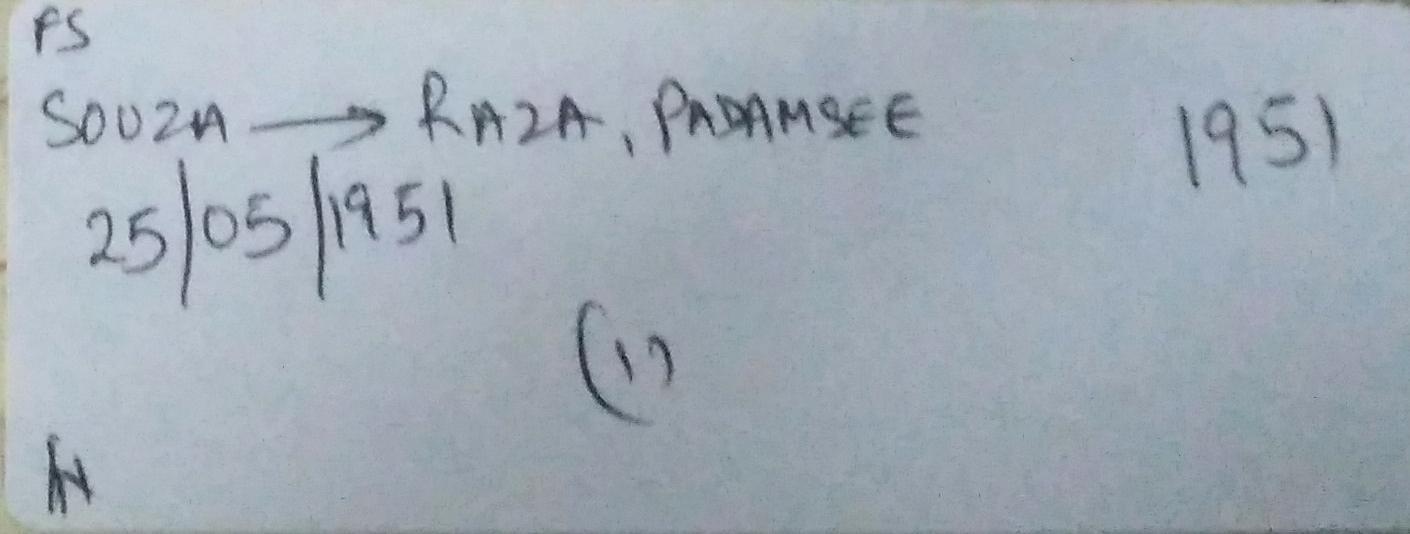 FS
SOUZA → RAZA, PADAMSEE
1951
25/05/1951
(1)